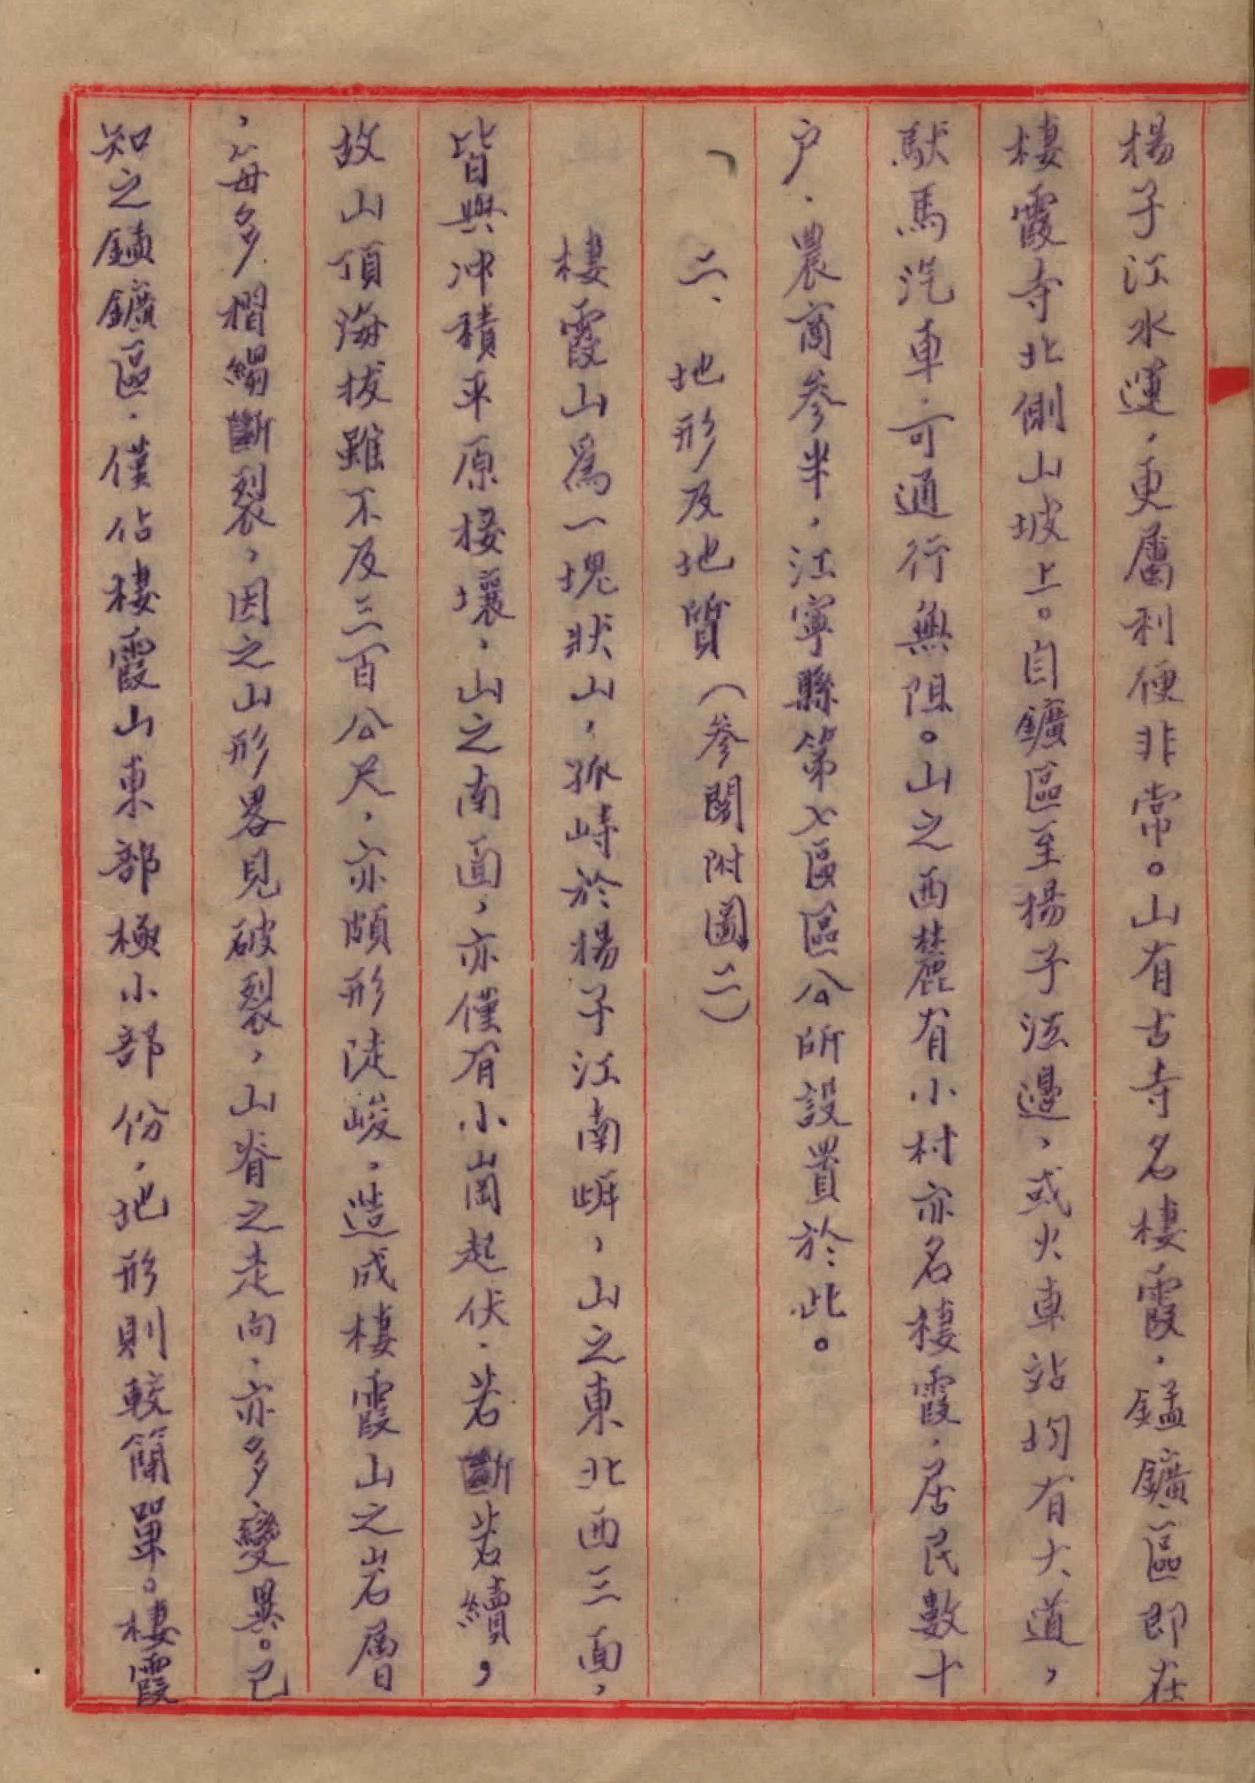 楊子江水運，更屬利便非常。山有古寺名棲霞，錳鑛區即在
棲霞寺北側山坡上。自鑛區至楊子江邊，或火車站均有大道，
馱馬汽車，可通行無阻。山之西麓有小村亦名棲霞，居民數十
户，農商參半，江寧縣第七區區公所設置於此。
二、地形及地質（參閱附圖二）
棲霞山爲一塊狀山，孤峙於楊子江南岸，山之東北西三面，
皆與冲積平原接壤，山之南面，亦僅有小崗起伏，若斷若續，
故山頂海拔雖不及三百公尺，亦頗形陡峻，造成棲霞山之岩層
，每多褶縐斷裂，因之山形畧見破裂，山脊之走向，亦多變異。已
知之錳鑛區，僅佔棲霞山東部極小部份，地形則較簡單。棲霞